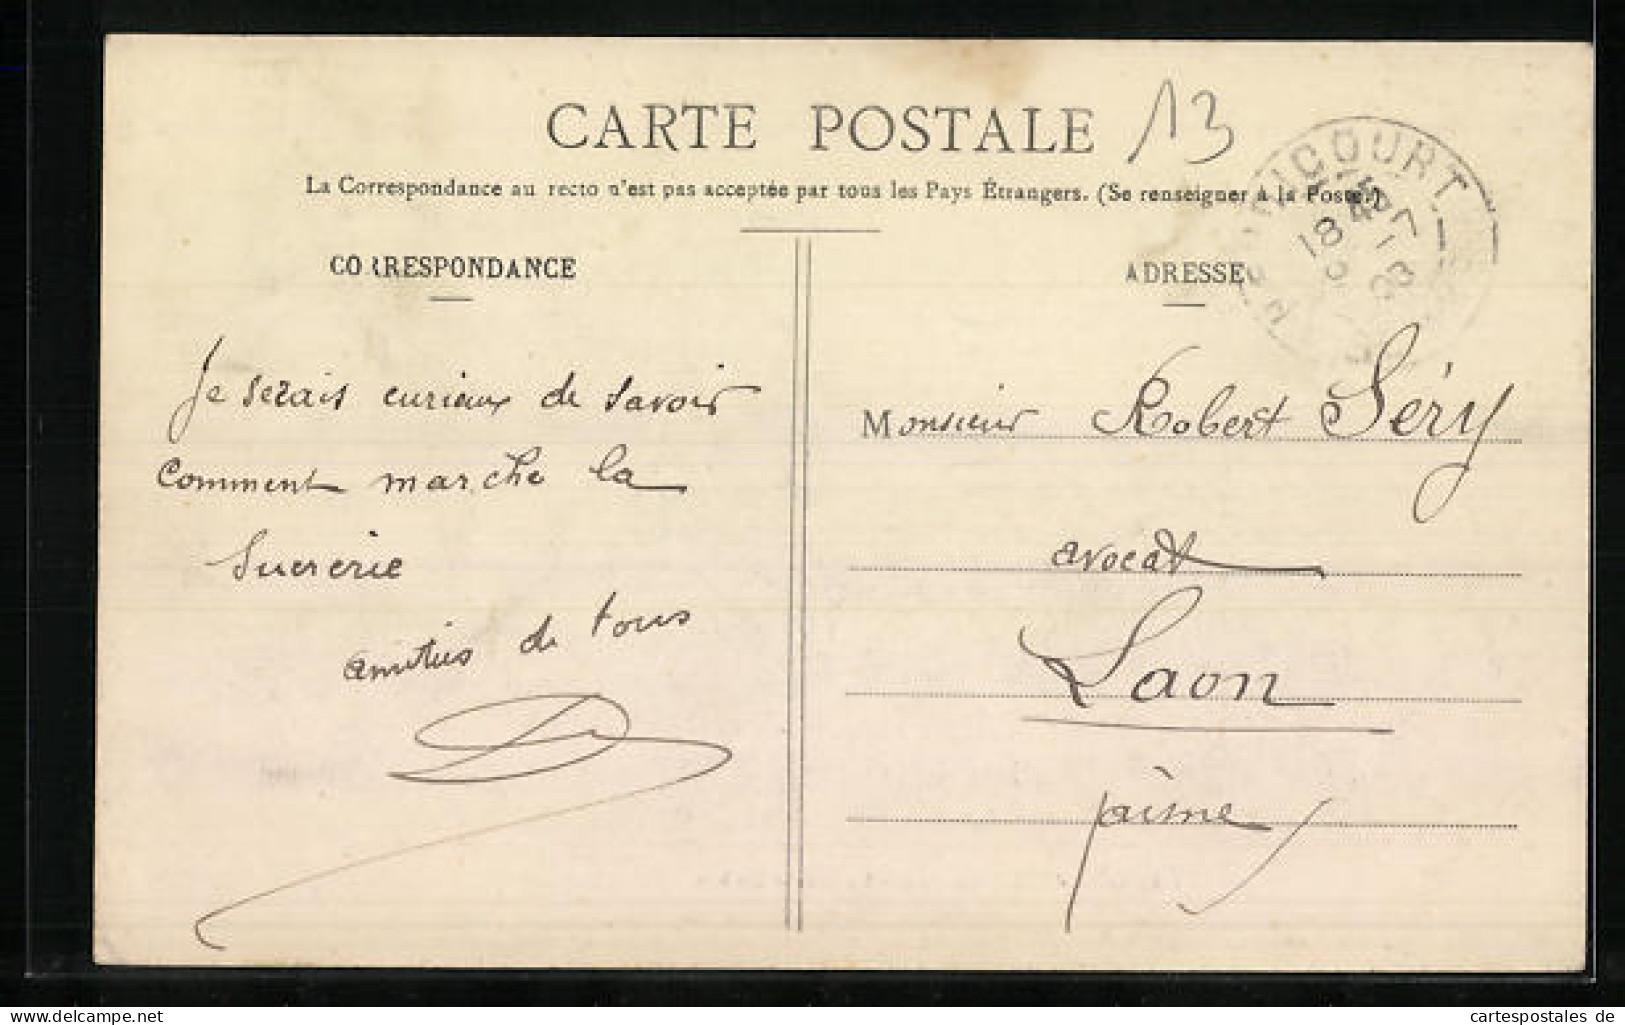 CARTE POSTALE
13
La Correspondance au recto n'est pas acceptée par tous les Pays Étrangers. (Se renseigner à la Poste.)
CORRESPONDANCE
Je serais curieux de savoir
comment marche la
Sucrerie
amitiés de tous
ADRESSE
Monsieur Robert Séry
avocat
Laon
aisne
18
oldthing.de
cartespostales de